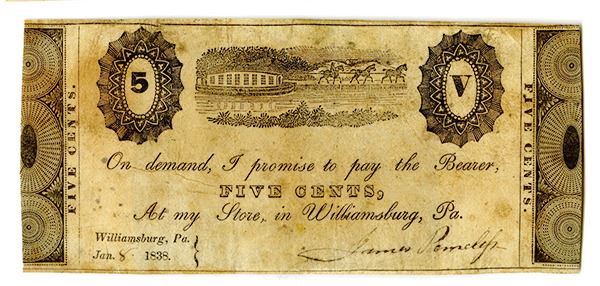 FIVE CENTS.
5
V
FIVE CENTS.
On demand, I promise to pay the Bearer,
FIVE CENTS,
At my Store, in Williamsburg, Pa.
Williamsburg, Pa.
Jan. 8 1838.
James